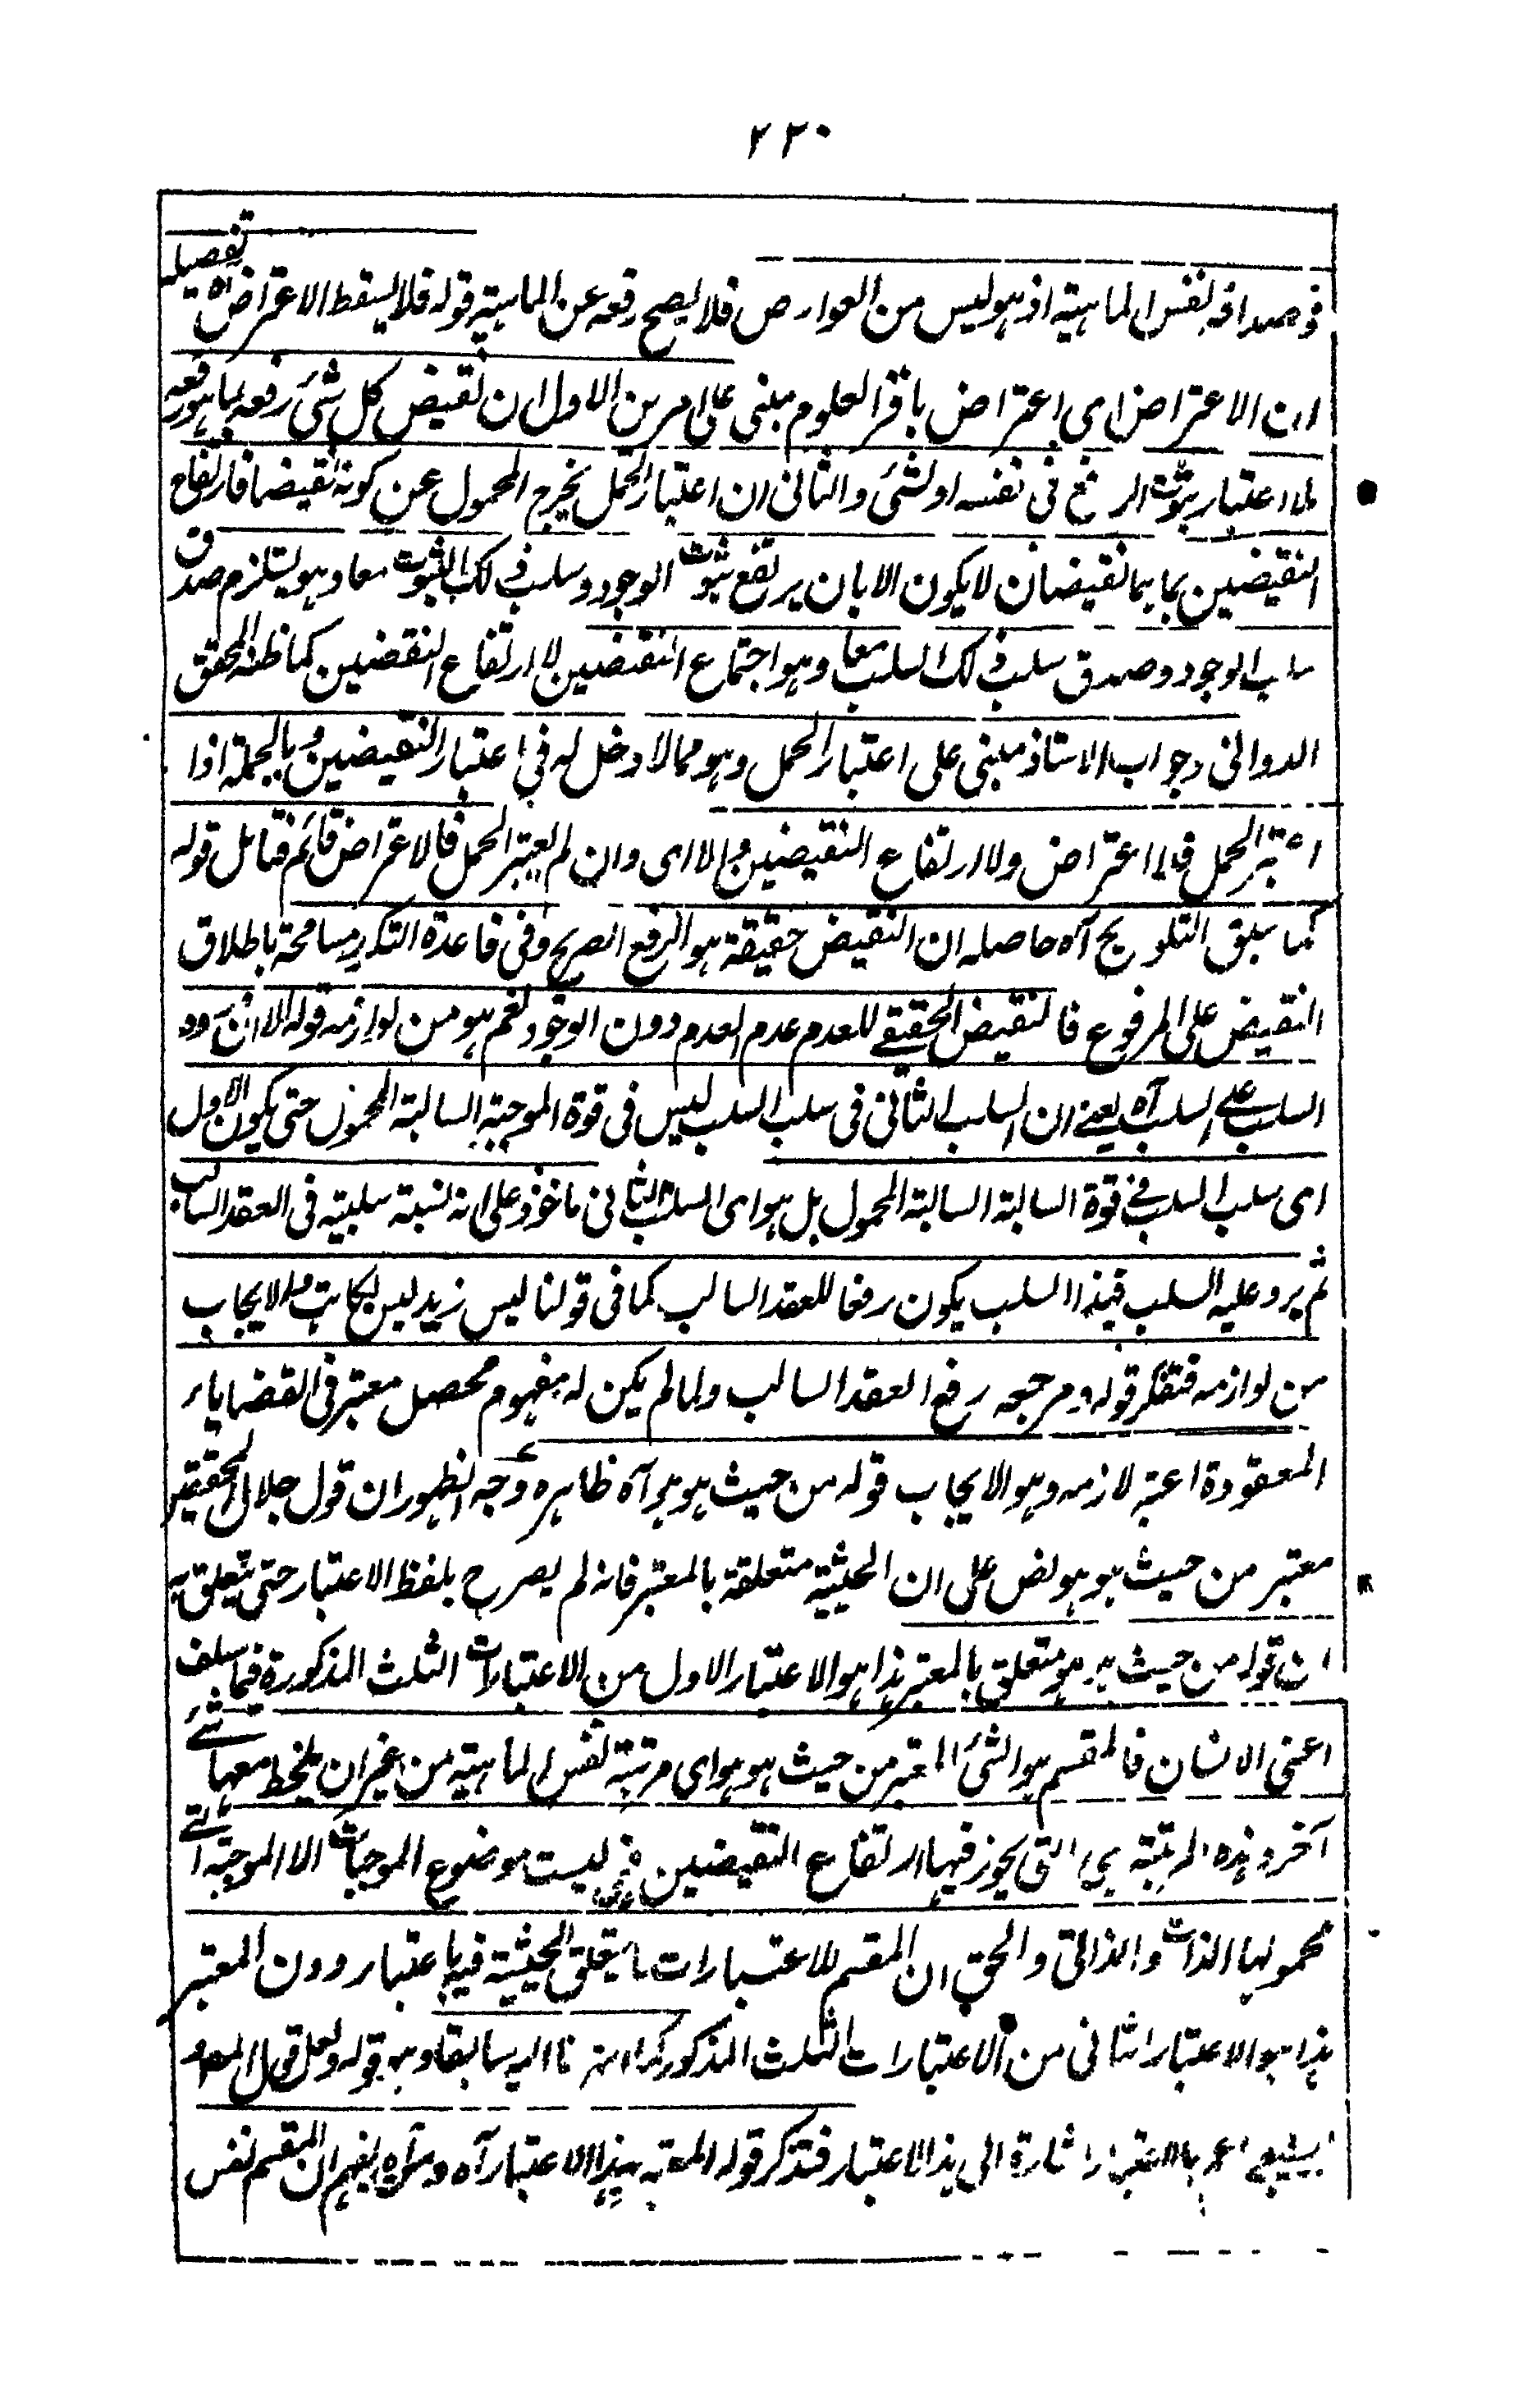 ٢٢٠
فمصداقه نفس الماهية اذ هو ليس من العوارض فلا يصح رفعه عن الماهية قوله فلا يسقط الاعتراض آه تفصيله
ان الاعتراض اى اعتراض باقر العلوم مبنى على امرين الاول ان نقيض كل شئ رفعه بما هو رفعه
بلا اعتبار ثبوت الرفع فى نفسه او لشئ والثانى ان اعتبار الحمل يخرج المحمول عن كونه نقيضا فارتفاع
النقيضين بما هما نقيضان لا يكون الا بان يرتفع ثبوت الوجود وسلب ذلك الثبوت معا وهو يستلزم صدق
سلب الوجود وصدق سلب ذلك السلب معا وهو اجتماع النقيضين لا ارتفاع النقيضين كما ظنه المحقق
الدوانى وجواب الاستاذ مبنى على اعتبار الحمل وهو مما لا دخل له فى اعتبار النقيضين وبالجملة اذا
اعتبر الحمل فلا اعتراض ولا ارتفاع النقيضين والا اى وان لم يعتبر الحمل فالاعتراض قائم فتامل قوله
كما سبق التلويح آه حاصله ان النقيض حقيقة هو الرفع الصريح وفى قاعدة التكرير مسامحة باطلاق
النقيض على المرفوع فالنقيض الحقيقے للعدم عدم العدم دون الوجود نعم هو من لوازمه قوله الا ان ورود
السلب على السلب آه يعنے ان السلب الثانى فى سلب السلب ليس فى قوة الموجبة السالبة المحمول حتى يكون الاول
اى سلب السلب فى قوة السالبة السالبة المحمول بل هو اى السلب الثانى ماخوذ على انه نسبة سلبية فى العقد السالب
ثم يرد عليه السلب فهذا السلب يكون رفعا للعقد السالب كما فى قولنا ليس زيد ليس بكاتب والايجاب
من لوازمه فتفكر قوله ومرجعه رفع العقد السالب ولما لم يكن له مفهوم محصل معتبر فى القضايا
المعقودة اعتبر لازمه وهو الايجاب قوله من حيث هو هو آه ظاهره وجه الظهور ان قول جلال المحققين
معتبر من حيث هو هو نص على ان الحيثية متعلقة بالمعتبر فانه لم يصرح بلفظ الاعتبار حتى يتعلق به
ان قوله من حيث هو هو متعلق بالمعتبر هذا هو الاعتبار الاول من الاعتبارات الثلث المذكورة فيما سلف
اعنى الانسان فالمقسم هو الشئ المعتبر من حيث هو هو اى مرتبة نفس الماهية من غير ان يلحظ معها شئے
آخر وهذه المرتبة هى التى يجوز فيها ارتفاع النقيضين فهى ليست موضوع الموجبات الا الموجبة التے
محمولها الذات والذاتى والحق ان المقسم للاعتبارات ما يتعلق الحيثية فيه باعتبار دون المعتبر
هذا هو الاعتبار الثانى من الاعتبارات الثلث المذكور كما اشرنا اليه سابقا وبه قوله ولعل قول
بالاعتبار اشارة الى هذا الاعتبار فتذكر قوله المعتبر بهذا الاعتبار آه ومآله يفهم ان المقسم نفس